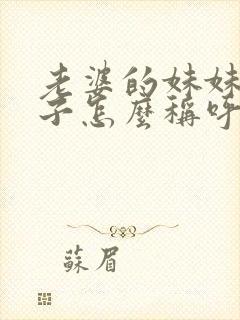 老婆的妹妹
子怎麼稱呼
蘇眉